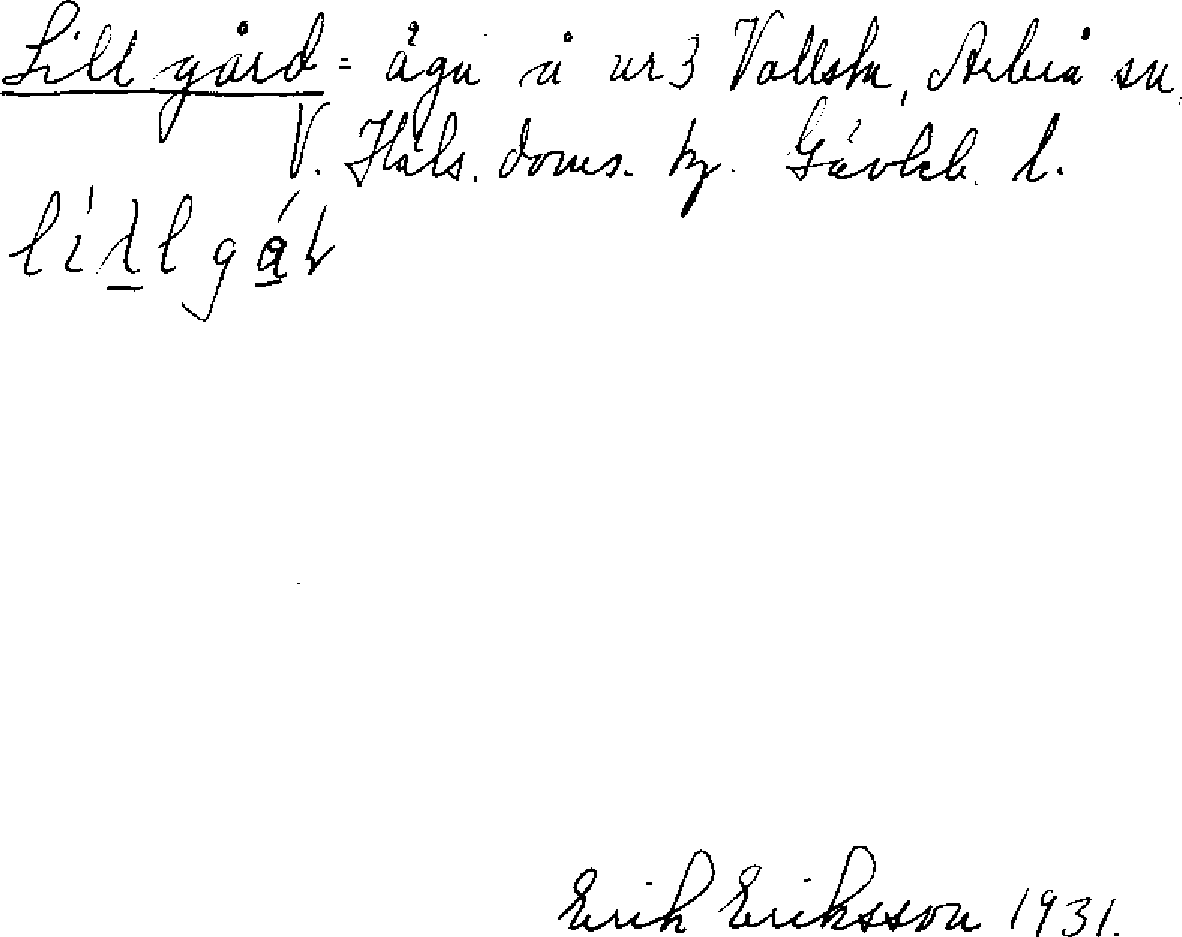 Lillgård = ägu å nr 3 Vallsta, Arbrå sn,
V. Häls. doms. Gävleb. l.
Erik Eriksson 1931.